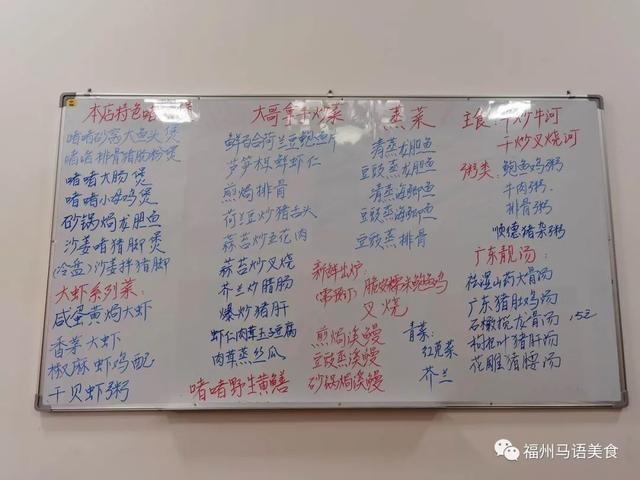 本店特色啫啫煲
啫啫砂窝大鱼头煲
啫啫排骨猪肠粉煲
啫啫大肠煲
啫啫小母鸡煲
砂锅焗龙胆鱼
沙姜啫猪脚煲
(冷盘)沙姜拌猪脚
大虾系列菜:
咸蛋黄焗大虾
香茅大虾
椒麻虾鸡配
干贝虾粥
大哥拿手炒菜
鲜百合荷兰豆鲍鱼片
芦笋木耳鲜虾仁
煎焗排骨
荷兰豆炒猪舌头
蒜苔炒五花肉
蒜苔炒叉烧
芥兰炒腊肠
爆炒猪肝
虾仁肉茸玉子豆腐
肉茸蒸丝瓜
啫啫野生黄鳝
蒸菜
清蒸龙胆鱼
豆豉蒸龙胆鱼
清蒸海鲫鱼
豆豉蒸海鲫鱼
豆豉蒸排骨
新鲜出炉:
(需预订) 脆皮糯米鲍鱼鸡
叉烧
煎焗溪鳗
豆豉蒸溪鳗
砂锅焗溪鳗
青菜:
红苋菜
芥兰
主食: 干炒牛河
干炒叉烧河
粥类: 鲍鱼鸡粥
牛肉粥.
排骨粥
顺德猪杂粥
广东靓汤:
祛湿山药大骨汤
广东猪肚鸡汤
石橄榄龙骨汤
152
枸杞叶猪肝汤
花胆猪腰汤
福州马语美食